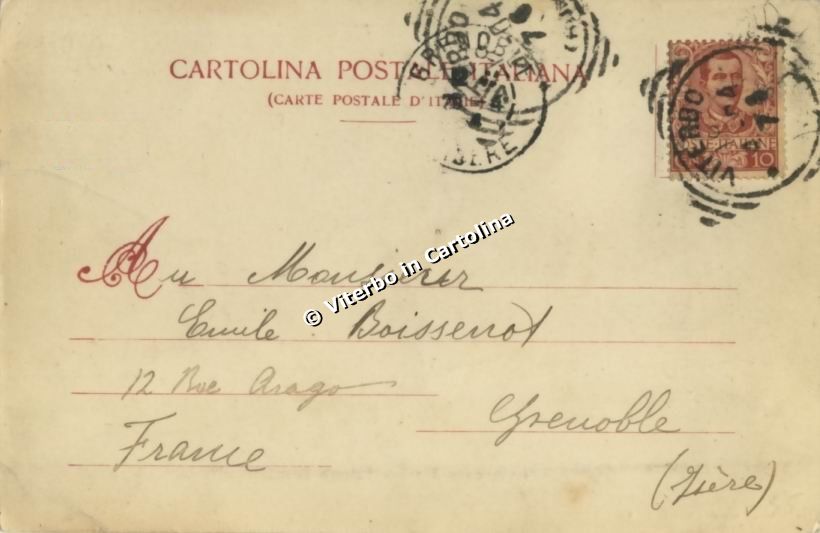 CARTOLINA POSTALE ITALIANA
(CARTE POSTALE D'ITALIE)
VITERBO
POSTE ITALIANE
10
ISERE
© Viterbo in Cartolina
Au Monsieur
Emile Boissenot
12 Rue Arago
Grenoble
France
(Isère)